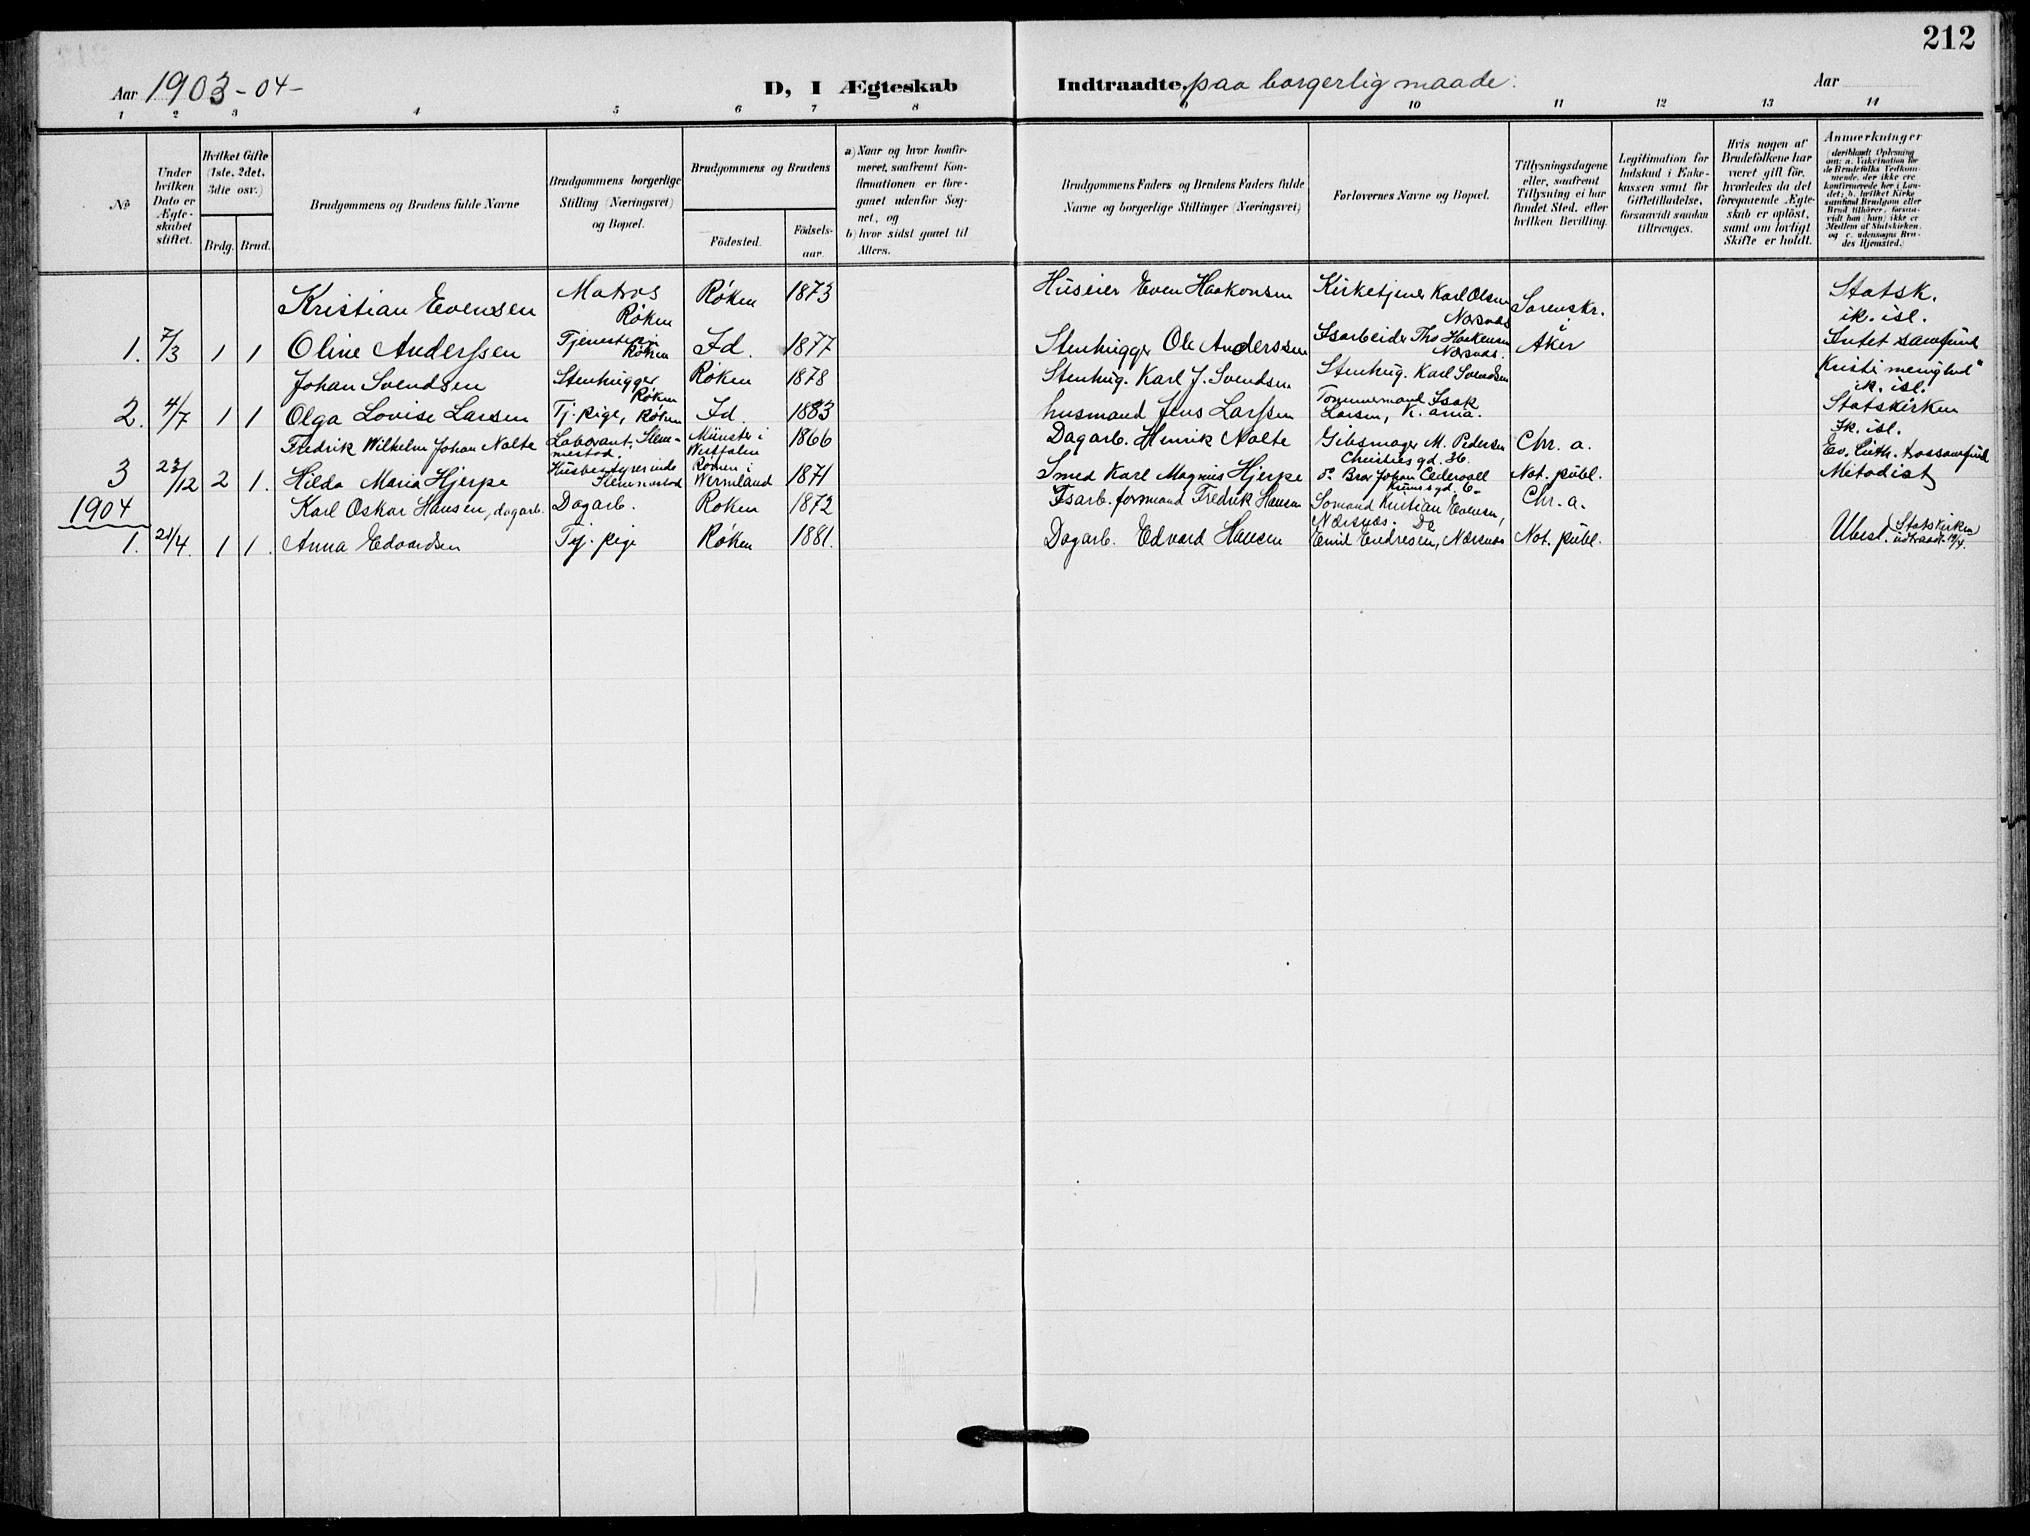 212
Aar 1903-04- D, I Ægteskab Indtraadte, paa borgerlig maade. Aar
1 2 3 4 5 6 7 8 9 10 11 12 13 14
No
Under hvilken Dato er Ægteskabet stiftet.
Hvilket Gifte (1ste, 2det, 3die osv.)
Brdg. Brud.
Brudgommens og Brudens fulde Navne
Brudgommens borgerlige Stilling (Næringsvei) og Bopæl.
Brudgommens og Brudens
Födested. Födselsaar.
a) Naar og hvor konfirmeret, saafremt Konfirmationen er foregaaet udenfor Sognet, og
b) hvor sidst gaaet til Alters.
Brudgommens Faders og Brudens Faders fulde Navne og borgerlige Stillinger (Næringsvei)
Forlovernes Navne og Bopæl.
Tillysningsdagene eller, saafremt Tillysning ei har fundet Sted, efter hvilken Bevilling.
Legitimation for Indskud i Enkekassen samt for Giftetilladelse, forsaavidt saadan tiltrænges.
Hvis nogen af Brudefolkene har været gift för, hvorledes da det foregaaende Ægteskab er oplöst, samt om lovligt Skifte er holdt.
Anmærkninger
(deriblandt Oplysning om: a. Vakcination for de Brudefolks Vedkommende, der ikke ere konfirmerede her i Landet; b. hvilket Kirkesamfund Brudgom eller Brud tilhörer, forsaavidt han (hun) ikke er Medlem af Statskirken, og c. udensogns Brudes Hjemsted.)
Kristian Evensen Matros Røken Røken 1873 Huseier Even Haakonsen Kirketjener Karl Olsen Nærsnes Sorenskr. Statsk. ik. isl.
1. 7/3 1 1 Oline Anderssen Røken Id. 1877 Stenhugger Ole Anderssen Isarbeider Ths Haakensen Nærsnes. i Aker Intet samfund
Johan Svendsen Stenhugger Røken Røken 1878 Stenhug. Karl J. Svendsen Stenhug. Karl Svendsen Kristi menighed" ik. isl.
2. 4/7 1 1 Olga Lovise Larsen Tj. pige, Røken Id. 1883 husmand Jens Larssen Tømmermand Isak Larsen, K.ania. Statskirken Ik. isl.
Fredrik Wilhelm Johan Nolte Laborant. Slemmestad. Münster i Westfalen 1866 Dagarb. Henrik Nolte Gibsmager M. Pedersen Christies gd. 36. Chr. a. Ev. Luth.
3 23/12 2 1. Hilda Maria Hjerpe Husbestyrerinde Slemmestad i Wermland 1871 Smed Karl Magnus Hjerpe Johan Not. publ. Metodist
1904 Karl Oskar Hansen, dagarb. Dagarb. Røken 1872 Isarb. formand Fredrik Hansen Sømand Kristian Evensen, Nærsnes. Chr. a.
1. 21/4 1 1. Anna Edvardsen Tj. pige Røken 1881. Dagarb. Edvard Hansen Emil Endresen, Nærsnes Not. publ. Ubest. (Statskirken udtraadt 19/4.